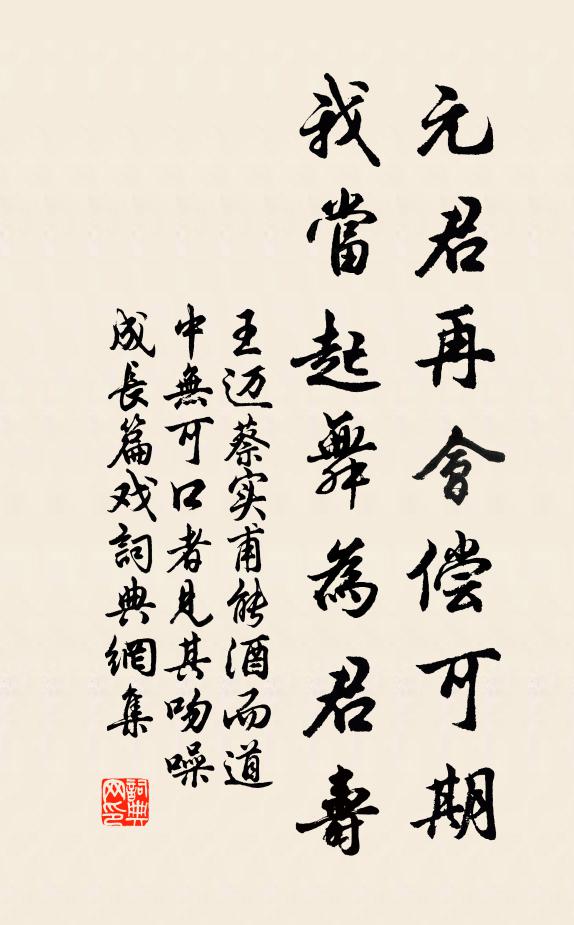 元君再會偿可期
我當起舞為君壽
王迈蔡实甫能酒而道
中無可口者見其吻噪
成長篇戏詞典網集
詞典网印